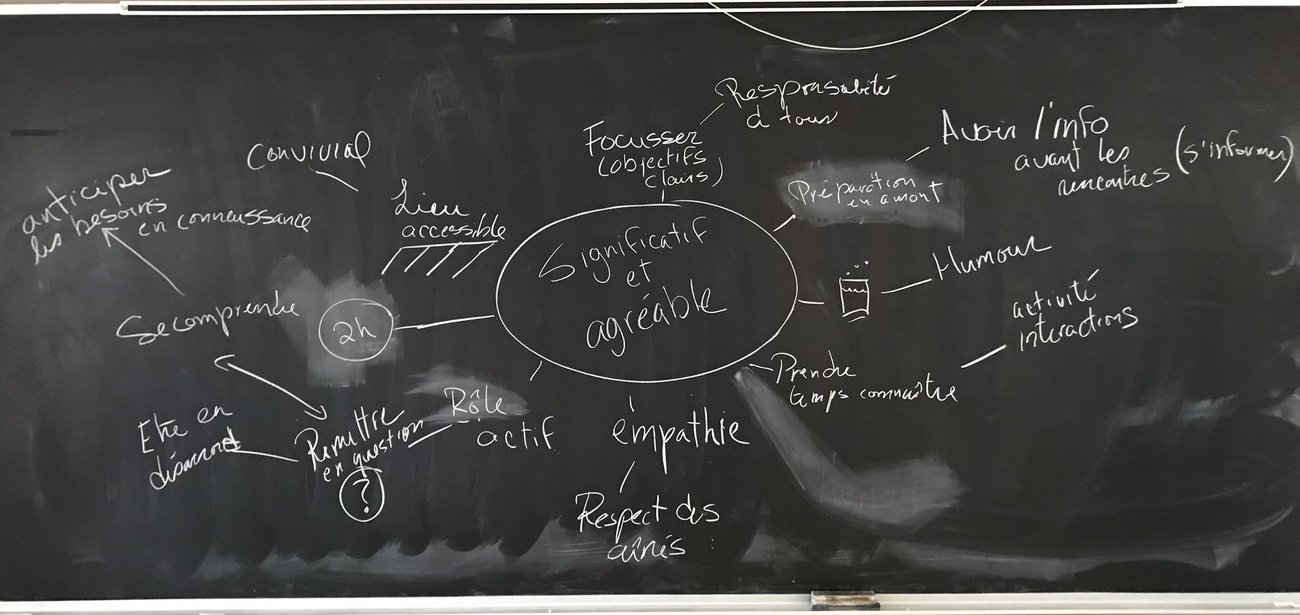 Responsabilité
à tous
Focusser
(objectifs
clairs)
Avoir l'info
avant les
rencontres
(s'informer)
Préparation
en amont
Convivial
Lieu
accessible
anticiper
les besoins
en connaissance
Significatif
et
agréable
Humour
activité
interactions
Se comprendre
2h
Prendre
temps connaître
Rôle
actif
Remettre
en question
?
Etre en
désaccord
empathie
Respect des
aînés